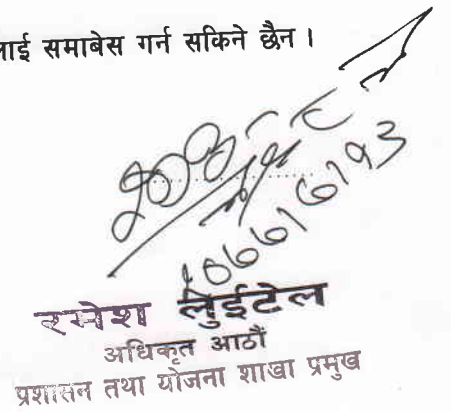 लाई समाबेस गर्न सकिने छैन ।
रमेश लुईटेल
अधिकृत आठौं
प्रशासन तथा योजना शाखा प्रमुख